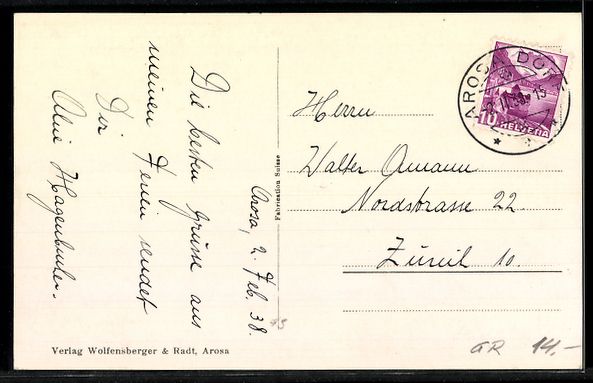 Arosa, 2. Feb. 38.
Die besten Grüsse aus
meinen Ferien sendet
Dir
Hagenbucher.
Fabrication Suisse
Verlag Wolfensberger & Radt, Arosa
AROSA DORF
10
HELVETIA
Herrn
Walter Amann
Nordstrasse 22
Zürich 10.
AR 14.-